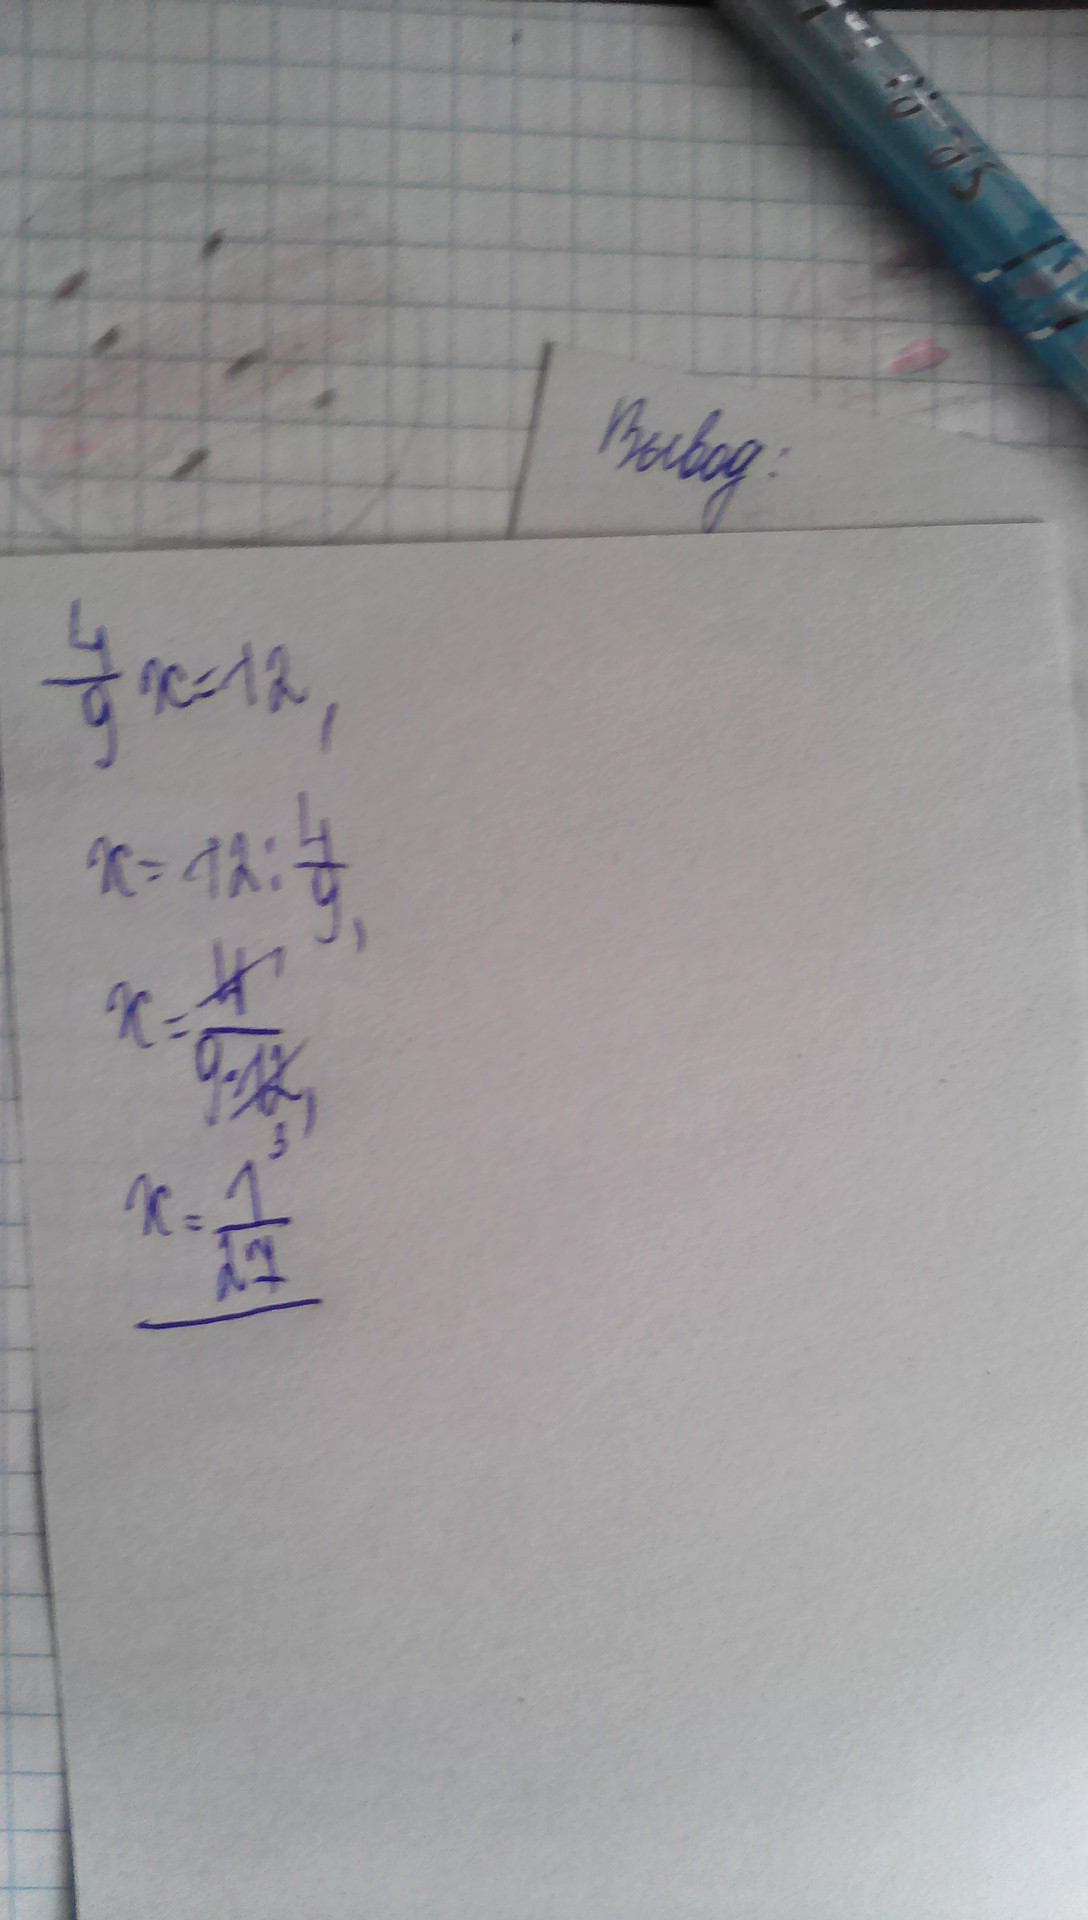 Вывод:
4/9 x = 12,
x = 12 : 4/9,
x = 4 1/9·12, 3
x = 1/27